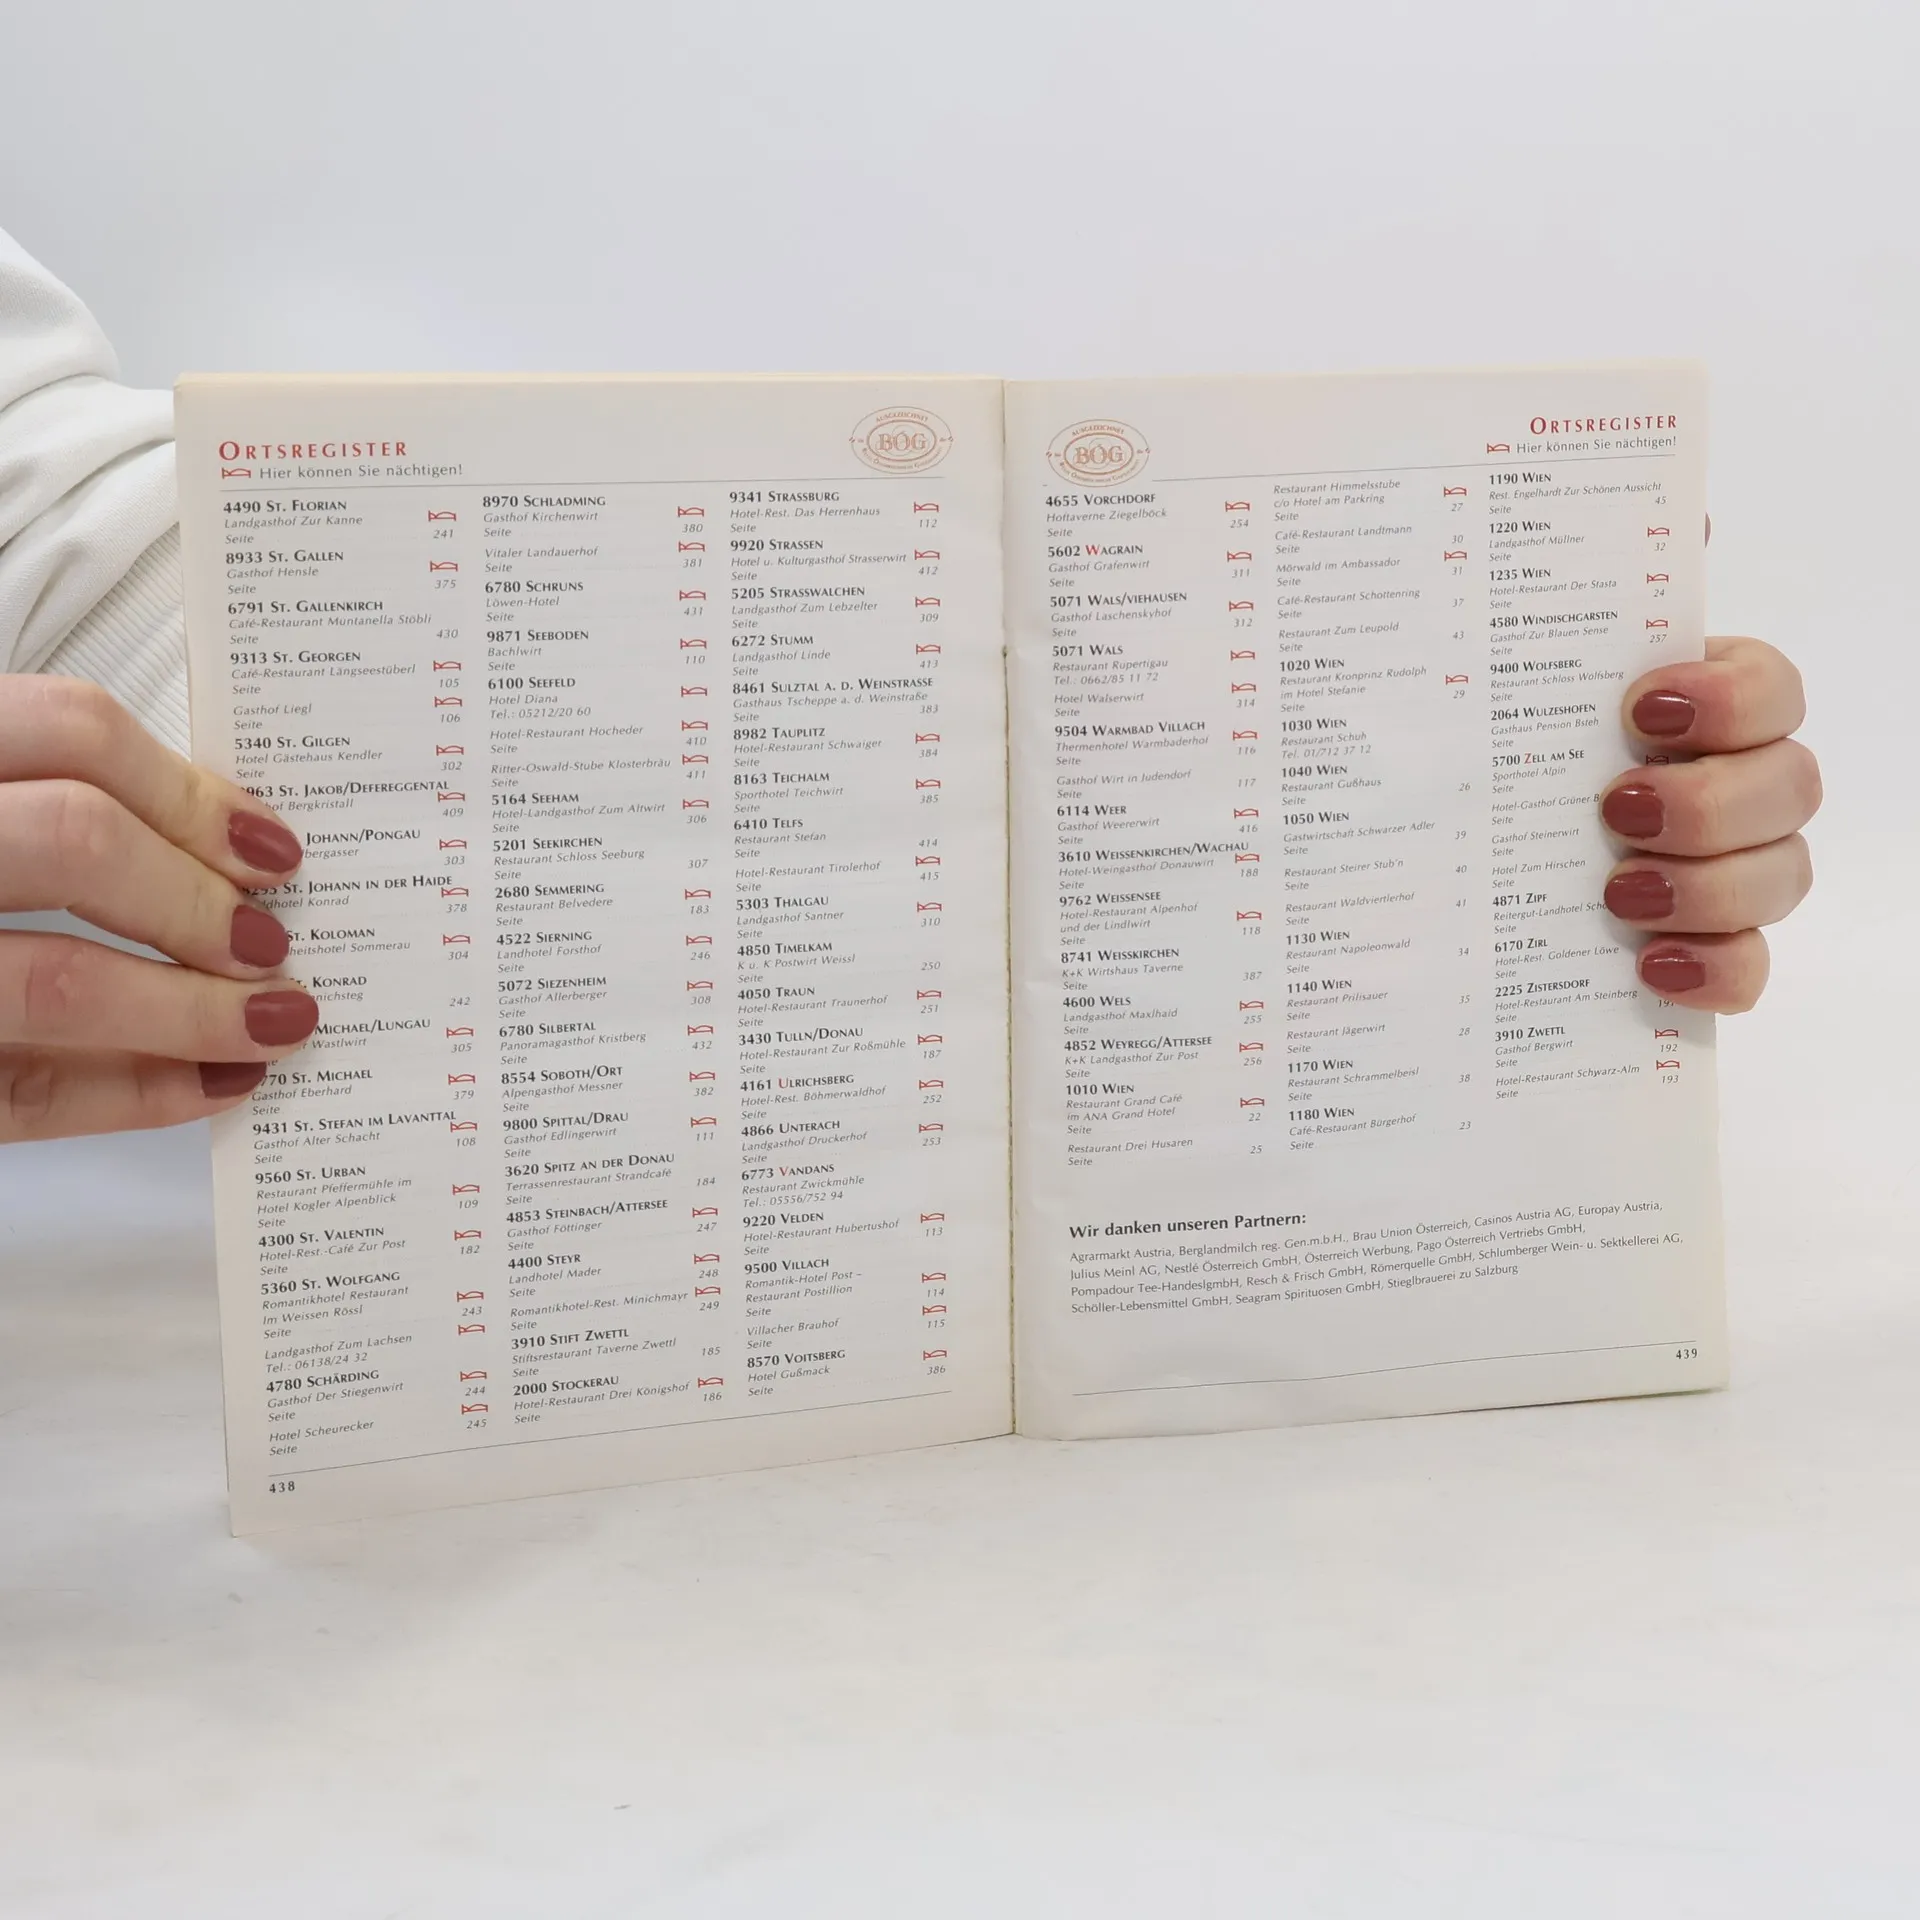 ORTSREGISTER
Hier können Sie nächtigen!
AUSGEZEICHNET
BÖG
4490 ST. FLORIAN
Landgasthof Zur Kanne
Seite 241
8933 ST. GALLEN
Gasthof Hensle
Seite 375
6791 ST. GALLENKIRCH
Café-Restaurant Muntanella Stöbli
Seite 430
9313 ST. GEORGEN
Café-Restaurant Längseestüberl
Seite 105
Gasthof Liegl
Seite 106
5340 ST. GILGEN
Hotel Gästehaus Kendler
Seite 302
963 ST. JAKOB/DEFEREGGENTAL
hof Bergkristall
409
JOHANN/PONGAU
bergasser
303
8295 ST. JOHANN IN DER HAIDE
dhotel Konrad
378
ST. KOLOMAN
heitshotel Sommerau
304
KONRAD
nichsteg
242
MICHAEL/LUNGAU
Wastlwirt
305
770 ST. MICHAEL
Gasthof Eberhard
Seite 379
9431 ST. STEFAN IM LAVANTTAL
Gasthof Alter Schacht
Seite 108
9560 ST. URBAN
Restaurant Pfeffermühle im
Hotel Kogler Alpenblick
Seite 109
4300 ST. VALENTIN
Hotel-Rest.-Café Zur Post
Seite 182
5360 ST. WOLFGANG
Romantikhotel Restaurant
Im Weissen Rössl
Seite 243
Landgasthof Zum Lachsen
Tel.: 06138/24 32
4780 SCHÄRDING
Gasthof Der Stiegenwirt
Seite 244
Hotel Scheurecker
Seite 245
8970 SCHLADMING
Gasthof Kirchenwirt
Seite 380
Vitaler Landauerhof
Seite 381
6780 SCHRUNS
Löwen-Hotel
Seite 431
9871 SEEBODEN
Bachlwirt
Seite 110
6100 SEEFELD
Hotel Diana
Tel.: 05212/20 60
Hotel-Restaurant Hocheder
Seite 410
Ritter-Oswald-Stube Klosterbräu
Seite 411
5164 SEEHAM
Hotel-Landgasthof Zum Altwirt
Seite 306
5201 SEEKIRCHEN
Restaurant Schloss Seeburg
Seite 307
2680 SEMMERING
Restaurant Belvedere
Seite 183
4522 SIERNING
Landhotel Forsthof
Seite 246
5072 SIEZENHEIM
Gasthof Allerberger
Seite 308
6780 SILBERTAL
Panoramagasthof Kristberg
Seite 432
8554 SOBOTH/ORT
Alpengasthof Messner
Seite 382
9800 SPITTAL/DRAU
Gasthof Edlingerwirt
Seite 111
3620 SPITZ AN DER DONAU
Terrassenrestaurant Strandcafé
Seite 184
4853 STEINBACH/ATTERSEE
Gasthof Föttinger
Seite 247
4400 STEYR
Landhotel Mader
Seite 248
Romantikhotel-Rest. Minichmayr
Seite 249
3910 STIFT ZWETTL
Stiftsrestaurant Taverne Zwettl
Seite 185
2000 STOCKERAU
Hotel-Restaurant Drei Königshof
Seite 186
9341 STRASSBURG
Hotel-Rest. Das Herrenhaus
Seite 112
9920 STRASSEN
Hotel u. Kulturgasthof Strasserwirt
Seite 412
5205 STRASSWALCHEN
Landgasthof Zum Lebzelter
Seite 309
6272 STUMM
Landgasthof Linde
Seite 413
8461 SULZTAL A. D. WEINSTRASSE
Gasthaus Tscheppe a. d. Weinstraße
Seite 383
8982 TAUPLITZ
Hotel-Restaurant Schwaiger
Seite 384
8163 TEICHALM
Sporthotel Teichwirt
Seite 385
6410 TELFS
Restaurant Stefan
Seite 414
Hotel-Restaurant Tirolerhof
Seite 415
5303 THALGAU
Landgasthof Santner
Seite 310
4850 TIMELKAM
K u. K Postwirt Weissl
Seite 250
4050 TRAUN
Hotel-Restaurant Traunerhof
Seite 251
3430 TULLN/DONAU
Hotel-Restaurant Zur Roßmühle
Seite 187
4161 ULRICHSBERG
Hotel-Rest. Böhmerwaldhof
Seite 252
4866 UNTERACH
Landgasthof Druckerhof
Seite 253
6773 VANDANS
Restaurant Zwickmühle
Tel.: 05556/752 94
9220 VELDEN
Hotel-Restaurant Hubertushof
Seite 113
9500 VILLACH
Romantik-Hotel Post –
Restaurant Postillion
Seite 114
Villacher Brauhof
Seite 115
8570 VOITSBERG
Hotel Gußmack
Seite 386
438
AUSGEZEICHNET
BÖG
ORTSREGISTER
Hier können Sie nächtigen!
4655 VORCHDORF
Hoftaverne Ziegelböck
Seite 254
5602 WAGRAIN
Gasthof Grafenwirt
Seite 311
5071 WALS/VIEHAUSEN
Gasthof Laschenskyhof
Seite 312
5071 WALS
Restaurant Rupertigau
Tel.: 0662/85 11 72
Hotel Walserwirt
Seite 314
9504 WARMBAD VILLACH
Thermenhotel Warmbaderhof
Seite 116
Gasthof Wirt in Judendorf
Seite 117
6114 WEER
Gasthof Weererwirt
Seite 416
3610 WEISSENKIRCHEN/WACHAU
Hotel-Weingasthof Donauwirt
Seite 188
9762 WEISSENSEE
Hotel-Restaurant Alpenhof
und der Lindlwirt
Seite 118
8741 WEISSKIRCHEN
K+K Wirtshaus Taverne
Seite 387
4600 WELS
Landgasthof Maxlhaid
Seite 255
4852 WEYREGG/ATTERSEE
K+K Landgasthof Zur Post
Seite 256
1010 WIEN
Restaurant Grand Café
im ANA Grand Hotel
Seite 22
Restaurant Drei Husaren
Seite 25
Restaurant Himmelsstube
c/o Hotel am Parkring
Seite 27
Café-Restaurant Landtmann
Seite 30
Mörwald im Ambassador
Seite 31
Café-Restaurant Schottenring
Seite 37
Restaurant Zum Leupold
Seite 43
1020 WIEN
Restaurant Kronprinz Rudolph
im Hotel Stefanie
Seite 29
1030 WIEN
Restaurant Schuh
Tel. 01/712 37 12
1040 WIEN
Restaurant Gußhaus
Seite 26
1050 WIEN
Gastwirtschaft Schwarzer Adler
Seite 39
Restaurant Steirer Stub'n
Seite 40
Restaurant Waldviertlerhof
Seite 41
1130 WIEN
Restaurant Napoleonwald
Seite 34
1140 WIEN
Restaurant Prilisauer
Seite 35
Restaurant Jägerwirt
Seite 28
1170 WIEN
Restaurant Schrammelbeisl
Seite 38
1180 WIEN
Café-Restaurant Bürgerhof
Seite 23
1190 WIEN
Rest. Engelhardt Zur Schönen Aussicht
Seite 45
1220 WIEN
Landgasthof Müllner
Seite 32
1235 WIEN
Hotel-Restaurant Der Stasta
Seite 24
4580 WINDISCHGARSTEN
Gasthof Zur Blauen Sense
Seite 257
9400 WOLFSBERG
Restaurant Schloss Wolfsberg
Seite
2064 WULZESHOFEN
Gasthaus Pension Bsteh
Seite
5700 ZELL AM SEE
Sporthotel Alpin
Seite
Hotel-Gasthof Grüner B
Seite
Gasthof Steinerwirt
Seite
Hotel Zum Hirschen
Seite
4871 ZIPF
Reitergut-Landhotel
Seite
6170 ZIRL
Hotel-Rest. Goldener Löwe
Seite
2225 ZISTERSDORF
Hotel-Restaurant Am Steinberg
Seite 191
3910 ZWETTL
Gasthof Bergwirt
Seite 192
Hotel-Restaurant Schwarz-Alm
Seite 193
Wir danken unseren Partnern:
Agrarmarkt Austria, Berglandmilch reg. Gen.m.b.H., Brau Union Österreich, Casinos Austria AG, Europay Austria,
Julius Meinl AG, Nestlé Österreich GmbH, Österreich Werbung, Pago Österreich Vertriebs GmbH,
Pompadour Tee-HandeslgmbH, Resch & Frisch GmbH, Römerquelle GmbH, Schlumberger Wein- u. Sektkellerei AG,
Schöller-Lebensmittel GmbH, Seagram Spirituosen GmbH, Stieglbrauerei zu Salzburg
439